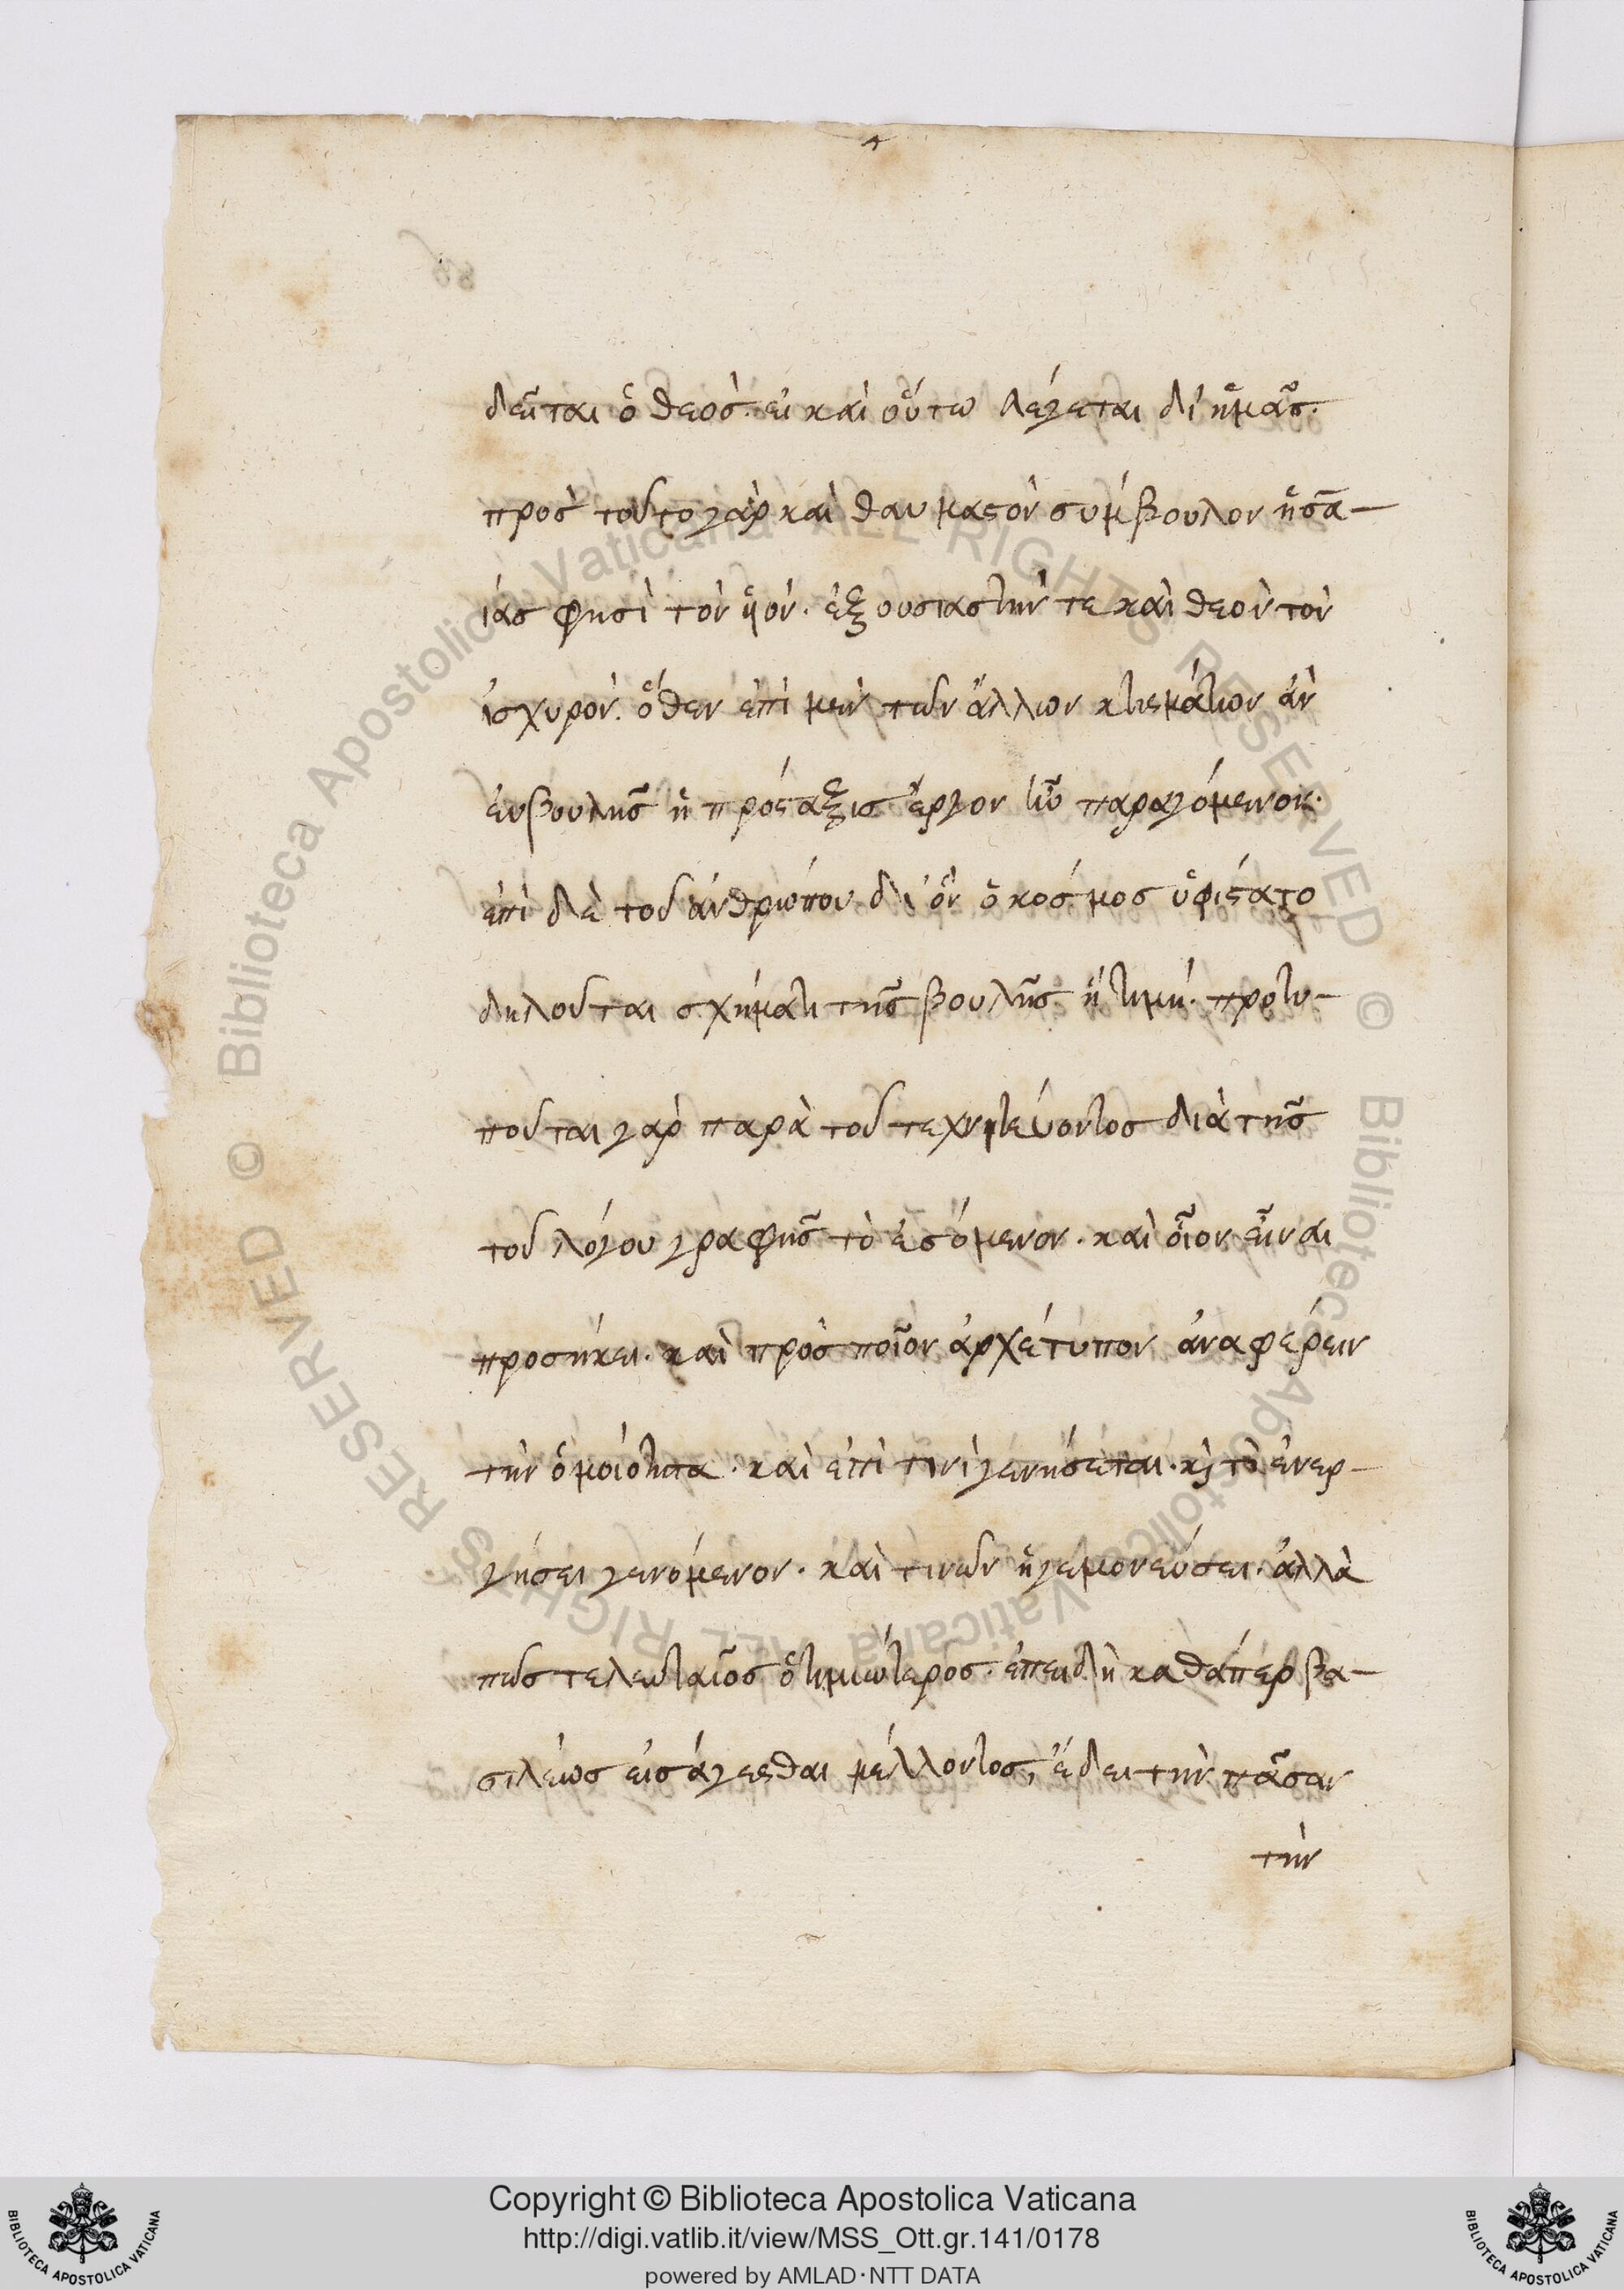 δεῖται ὁ θεός. εἰ καὶ οὕτω λέγεται δι' ἡμᾶς.
πρὸς τοῦτο γὰρ καὶ θαυμαστὸν σύμβουλον ἡσα-
ίας φησὶ τὸν ὑὸν. ἐξουσιαστήν τε καὶ θεὸν τὸν
ἰσχυρόν. ὅθεν ἐπὶ μὲν τῶν ἄλλων κτισμάτων ἀν
ευβουλῆς ἡ πρόσταξις ἔργον ἦν παραγόμενον.
ἐπὶ δὲ τοῦ ἀνθρώπου δι' ὃν ὁ κόσμος ὑφίστατο
δηλοῦται σχήματι τῆς βουλῆς ἡ τιμή. προτυ-
ποῦται γὰρ παρὰ τοῦ τεχνιτεύοντος διὰ τῆς
τοῦ λόγου γραφῆς τὸ ἐσόμενον. καὶ οἷον εἶναι
προσήκει. καὶ πρὸς ποῖον ἀρχέτυπον ἀναφέρειν
τὴν ὁμοιότητα. καὶ ἐπὶ τινὶ γενήσεται. κὶ τὶ ἐνερ-
γήσει γενόμενον. καὶ τινῶν ἡγεμονεύσει. ἀλλὰ
πῶς τελευταῖος ὁ τιμιώτερος. ἐπειδὴ καθάπερ βα-
σιλέως εἰσάγεσθαι μέλλοντος, ἔδει τὴν πᾶσαν
τὴν
Copyright © Biblioteca Apostolica Vaticana
http://digi.vatlib.it/view/MSS_Ott.gr.141/0178
powered by AMLAD·NTT DATA
BIBLIOTECA APOSTOLICA VATICANA
BIBLIOTECA APOSTOLICA VATICANA
© Biblioteca Apostolica Vaticana ALL RIGHTS RESERVED © Biblioteca Apostolica Vaticana ALL RIGHTS RESERVED